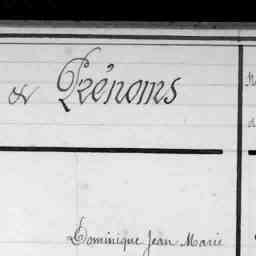 & Prénoms
Dominique Jean Marie